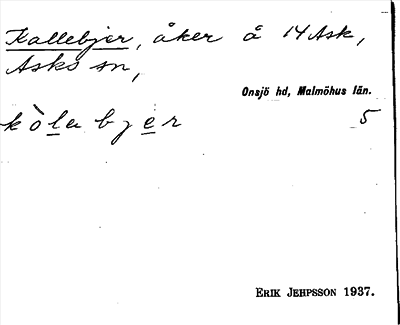 Kallebjer, åker å 14 Ask,
Asks sn,
Onsjö hd, Malmöhus län.
kòlabjer 5
ERIK JEHPSSON 1937.